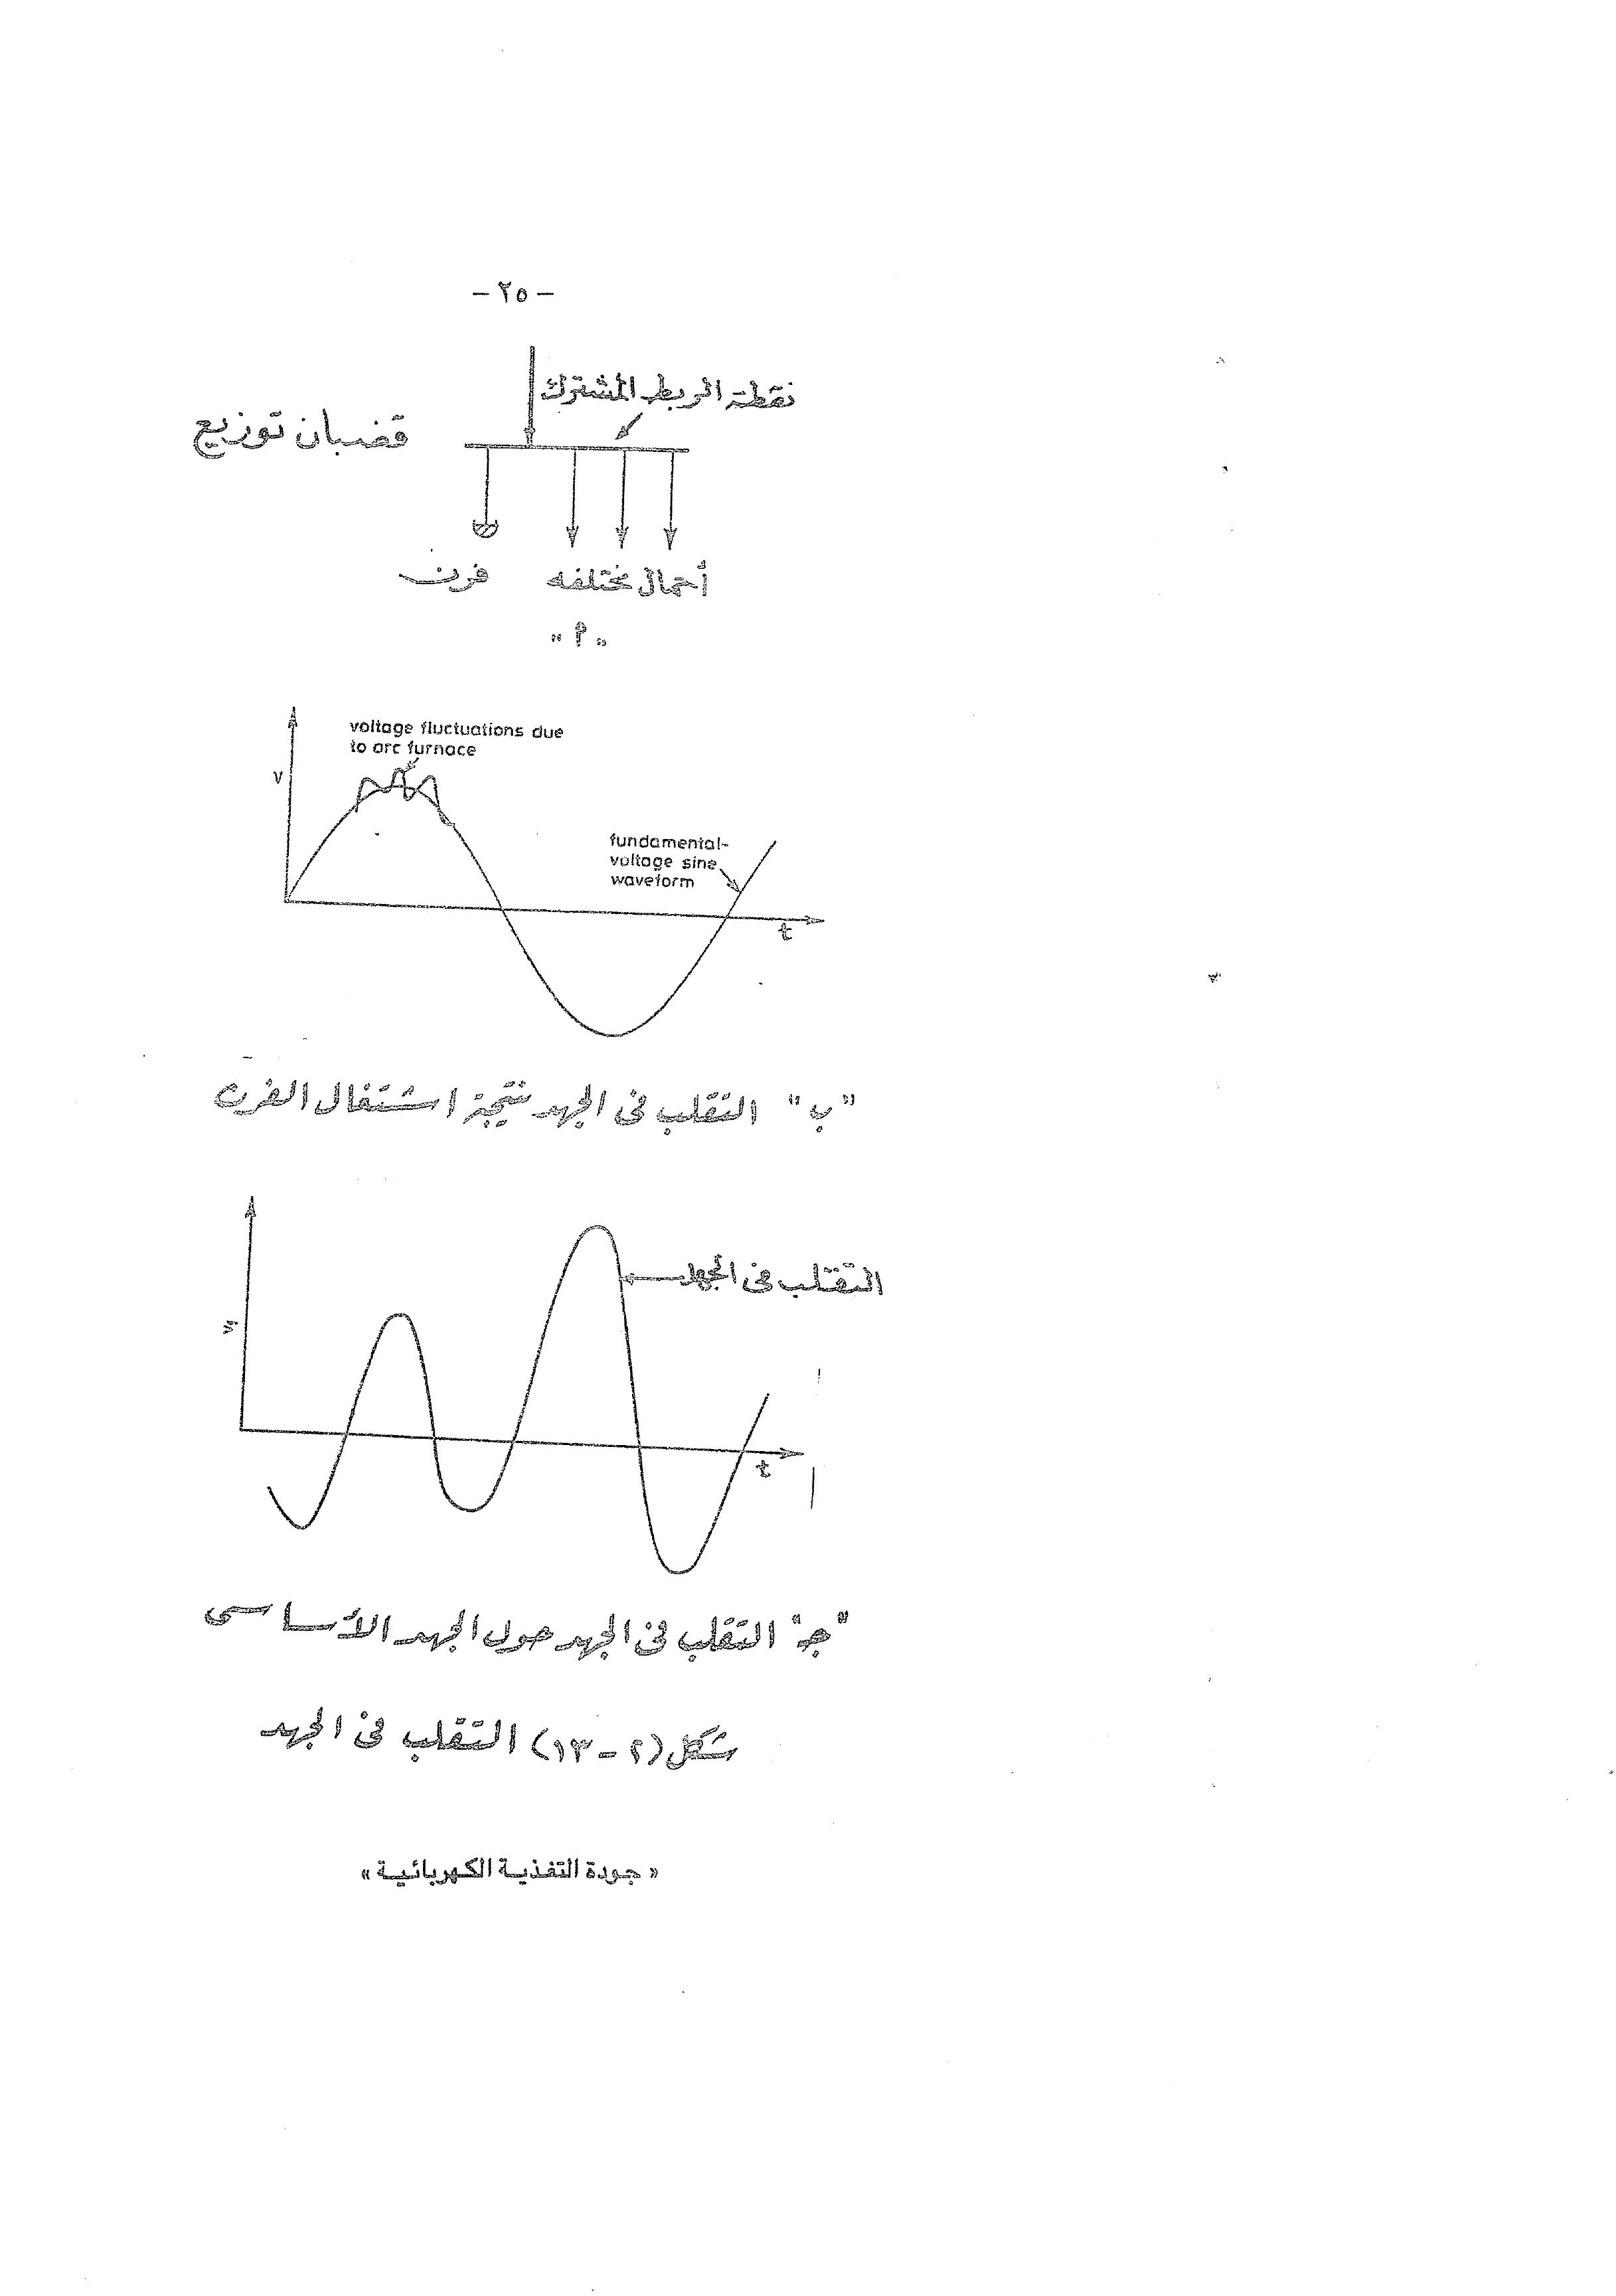 - ٢٥ -
نقطة الربط المشترك
قضبان توزيع
أحمال مختلفه
فرن
" أ "
voltage fluctuations due
to arc furnace
V
fundamental-
voltage sine
waveform
t
"ب" التقلب فى الجهد نتيجة اشتغال الفرن
التقلب فى الجهد
t
"جـ" التقلب فى الجهد حول الجهد الأساسى
شكل (٢ - ١٣) التقلب فى الجهد
« جودة التغذية الكهربائية »